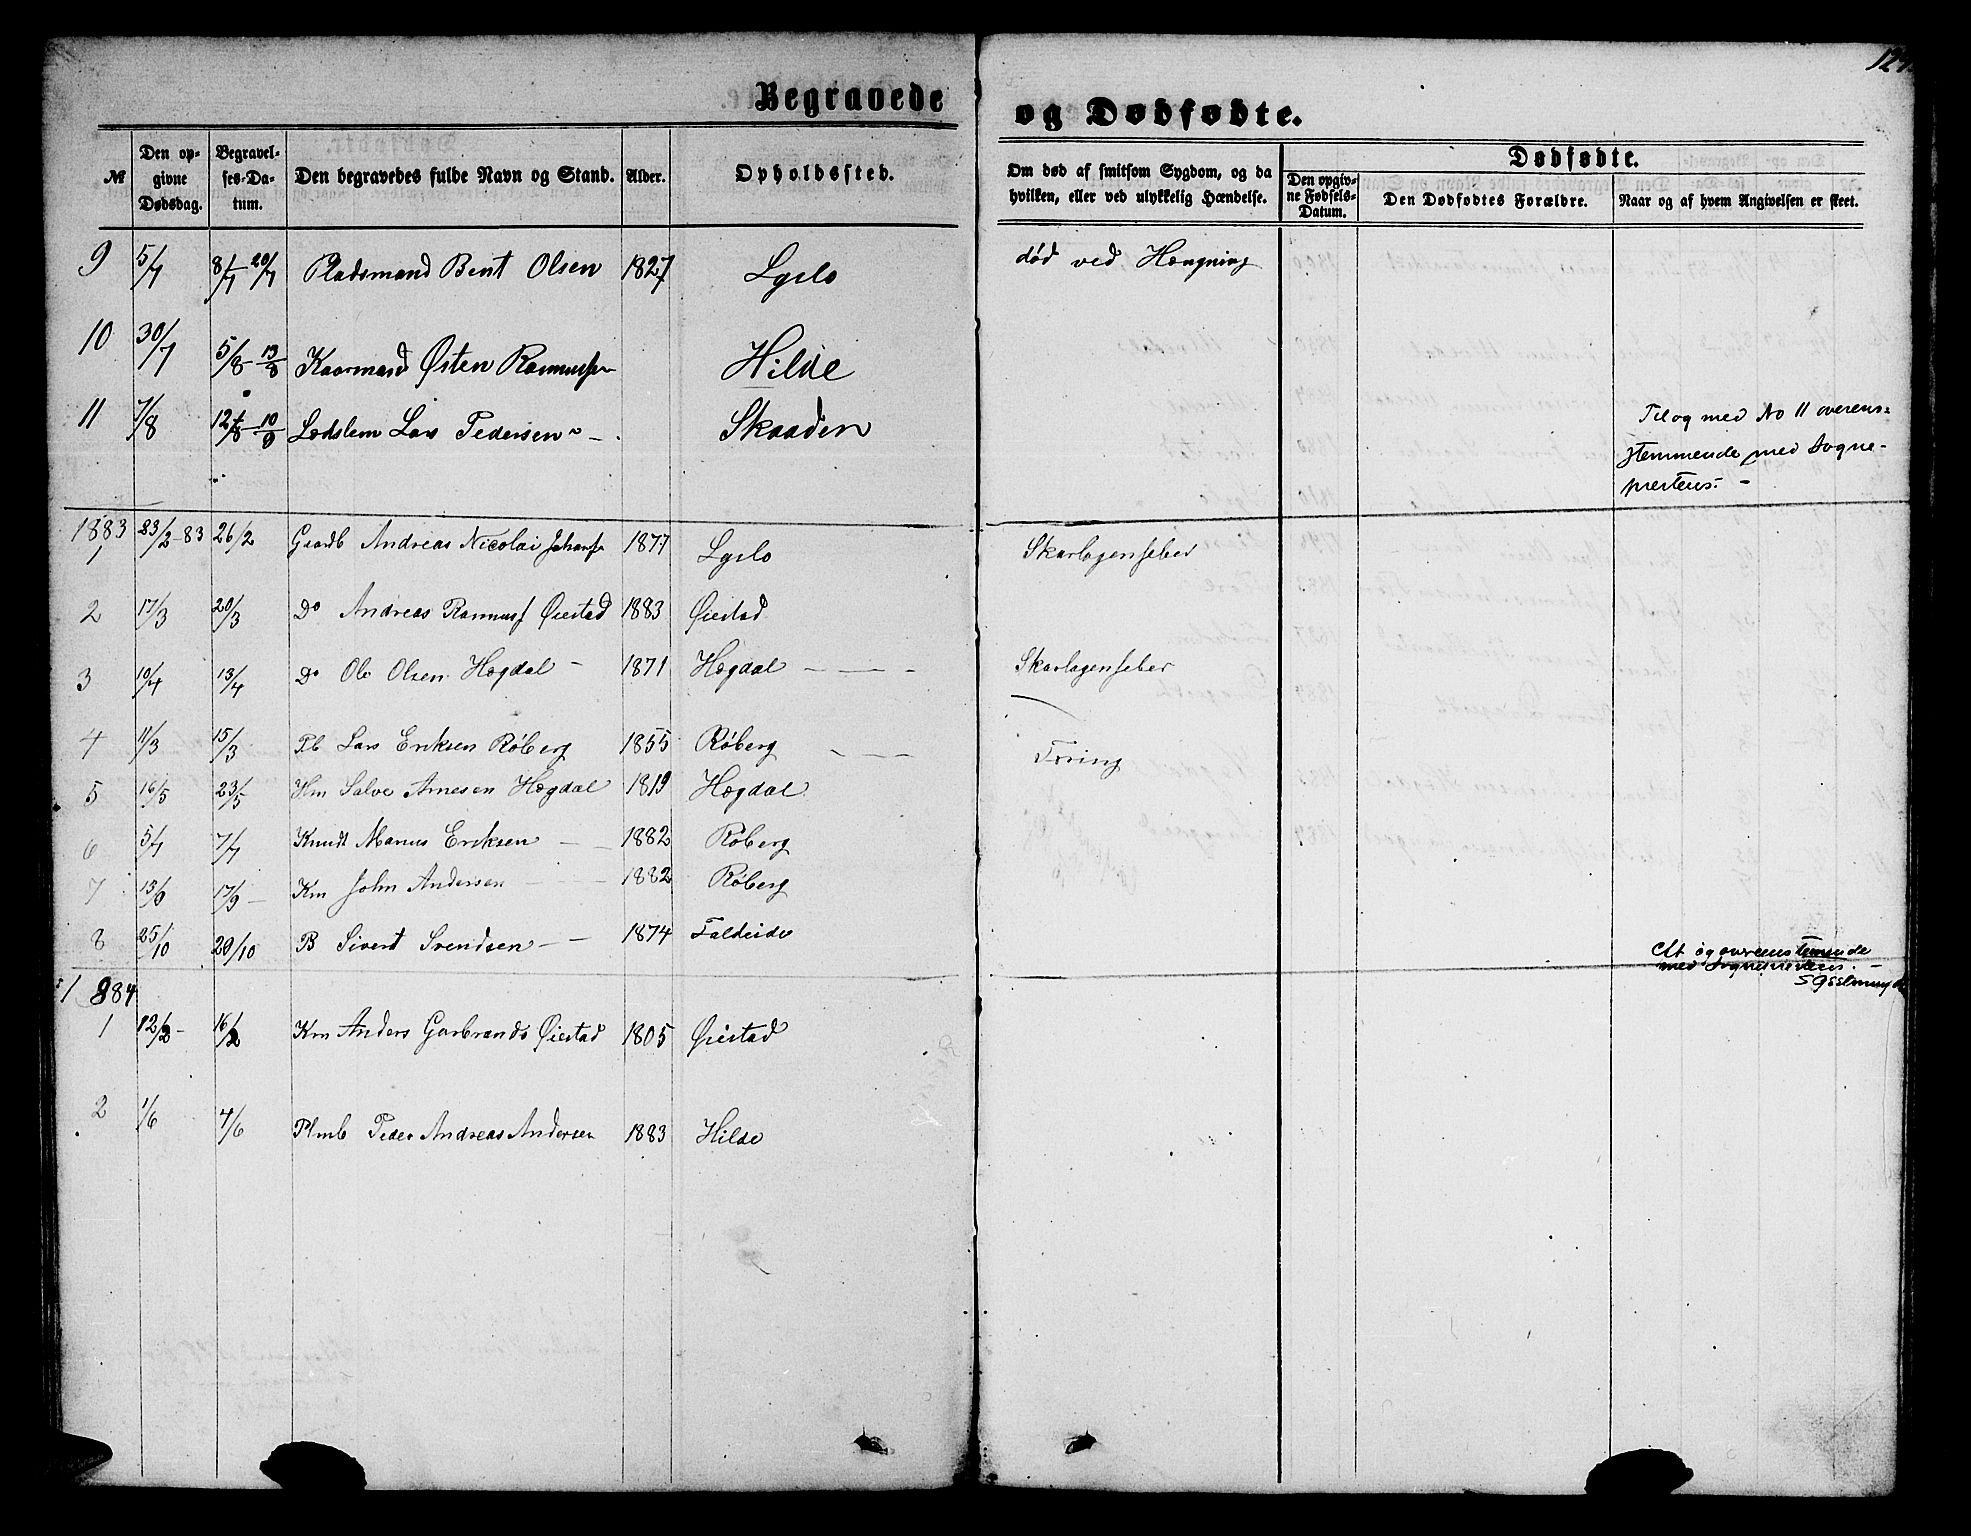 Begravede og Dødfødte.
12
№ Den opgivne Dødsdag. Begravelses-Datum. Den begravedes fulde Navn og Stand. Alder. Opholdssted. Om død af smitsom Sygdom, og da hvilken, eller ved ulykkelig Hændelse. Dødfødte. Den opgivne Fødsels-Datum. Den Dødfødtes Forældre. Naar og af hvem Angivelsen er skeet.
9 5/7 8/7 20/7 Pladsmand Bent Olsen 1827 Lgslo død ved Hængning
10 30/7 5/8 - 13/8 Kaarmand Østen Rasmussen Hilde
11 7/8 12/8 - 10/9 Lars Pedersen - Skaaden
Til og med No 11 overens=
stemmende med Sogne-
prestens. -
1883
1 23/2-83 26/2 Gaardb Andreas Nicolai Johans 1877 Lgslo Skarlagensfeber
2 17/3 20/3 Do Andreas Rasmus Øiestad 1883 Øiestad
3 10/4 13/4 Do Ole Olsen Hægdal - 1871 Hægdal - - - Skarlagensfeber
4 11/3 15/3 Pb Lars Eriksen Røberg 1855 Røberg - - Tæring
5 16/5 23/5 Hm Salve Arnesen Hægdal 1819 Hægdal
6 5/7 7/7 Knudt Marius Eriksen - - 1882 Røberg
7 13/9 17/9 - Km John Andersen - - 1882 Røberg
8 25/10 29/10 B Sivert Svendsen - - 1874 Faldeide
og overensstemmende
med Sogneprestens. -
1884
1 12/2 - 16/2 Km Anders Garbrands Øiestad 1805 Øiestad
2 1/6 4/6 Plmb Peder Andreas Andersen 1883 Hilde